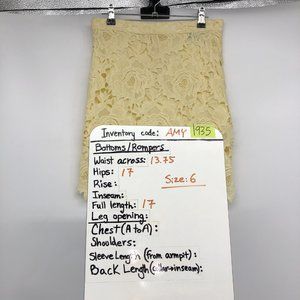 Inventory code: AMY 1935
Bottoms/Rompers
Waist across: 13.75
Hips: 17
Rise: Size: 6
Inseam:
Full length: 17
Leg opening:
Chest (A to A):
Shoulders:
Sleeve Length (from armpit):
Back Length (collar→inseam):